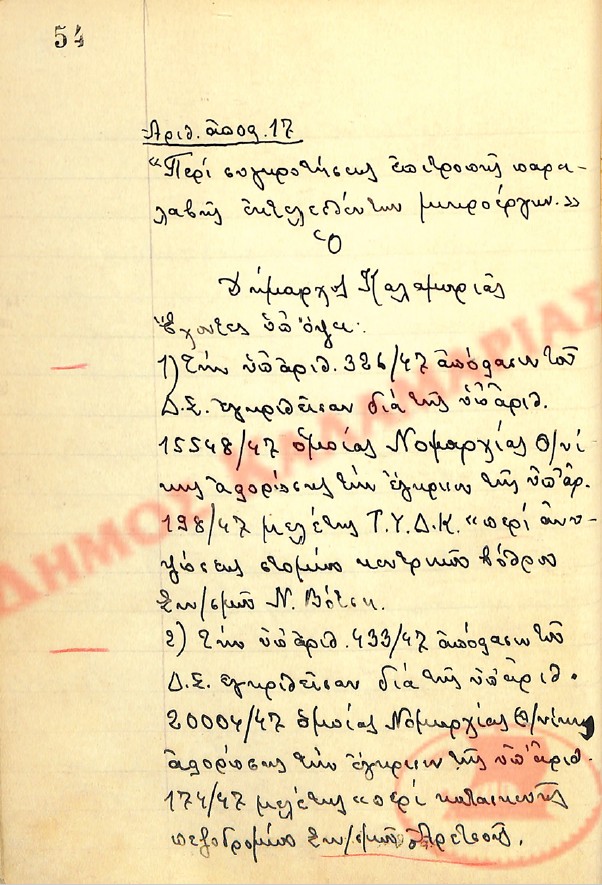 54
Ἀριθ. ἀποφ. 17
"Περί συγκροτήσεως ἐπιτροπῆς παρα-
λαβῆς ἐκτελεσθέντων μικροέργων."
Ὁ
Δήμαρχος Καλαμαριᾶς
Ἔχοντες ὑπ' ὄψει:
1) Τήν ὑπ' ἀριθ. 326/47 ἀπόφασιν τοῦ
Δ.Σ. ἐγκριθεῖσαν διά τῆς ὑπ' ἀριθ.
15548/47 ὁμοίας Νομαρχίας Θ/νί
κης ἀφορώσης τήν ἔγκρισιν τῆς ὑπ' ἀρ.
198/47 μελέτης Τ.Υ.Δ.Κ. "περί ἀνυ-
ψώσεως στομίου κεντρικοῦ βόθρου
Συν/σμοῦ Ν. Βότση.
2) Τήν ὑπ' ἀριθ. 433/47 ἀπόφασιν τοῦ
Δ.Σ. ἐγκριθεῖσαν διά τῆς ὑπ' ἀριθ.
20004/47 ὁμοίας Νομαρχίας Θ/νίκης
ἀφορώσης τήν ἔγκρισιν τῆς ὑπ' ἀριθ.
174/47 μελέτης "περί κατασκευῆς
πεζοδρομίου Συν/σμοῦ Ἀρετσοῦς.
ΔΗΜΟΣ ΚΑΛΑΜΑΡΙΑΣ